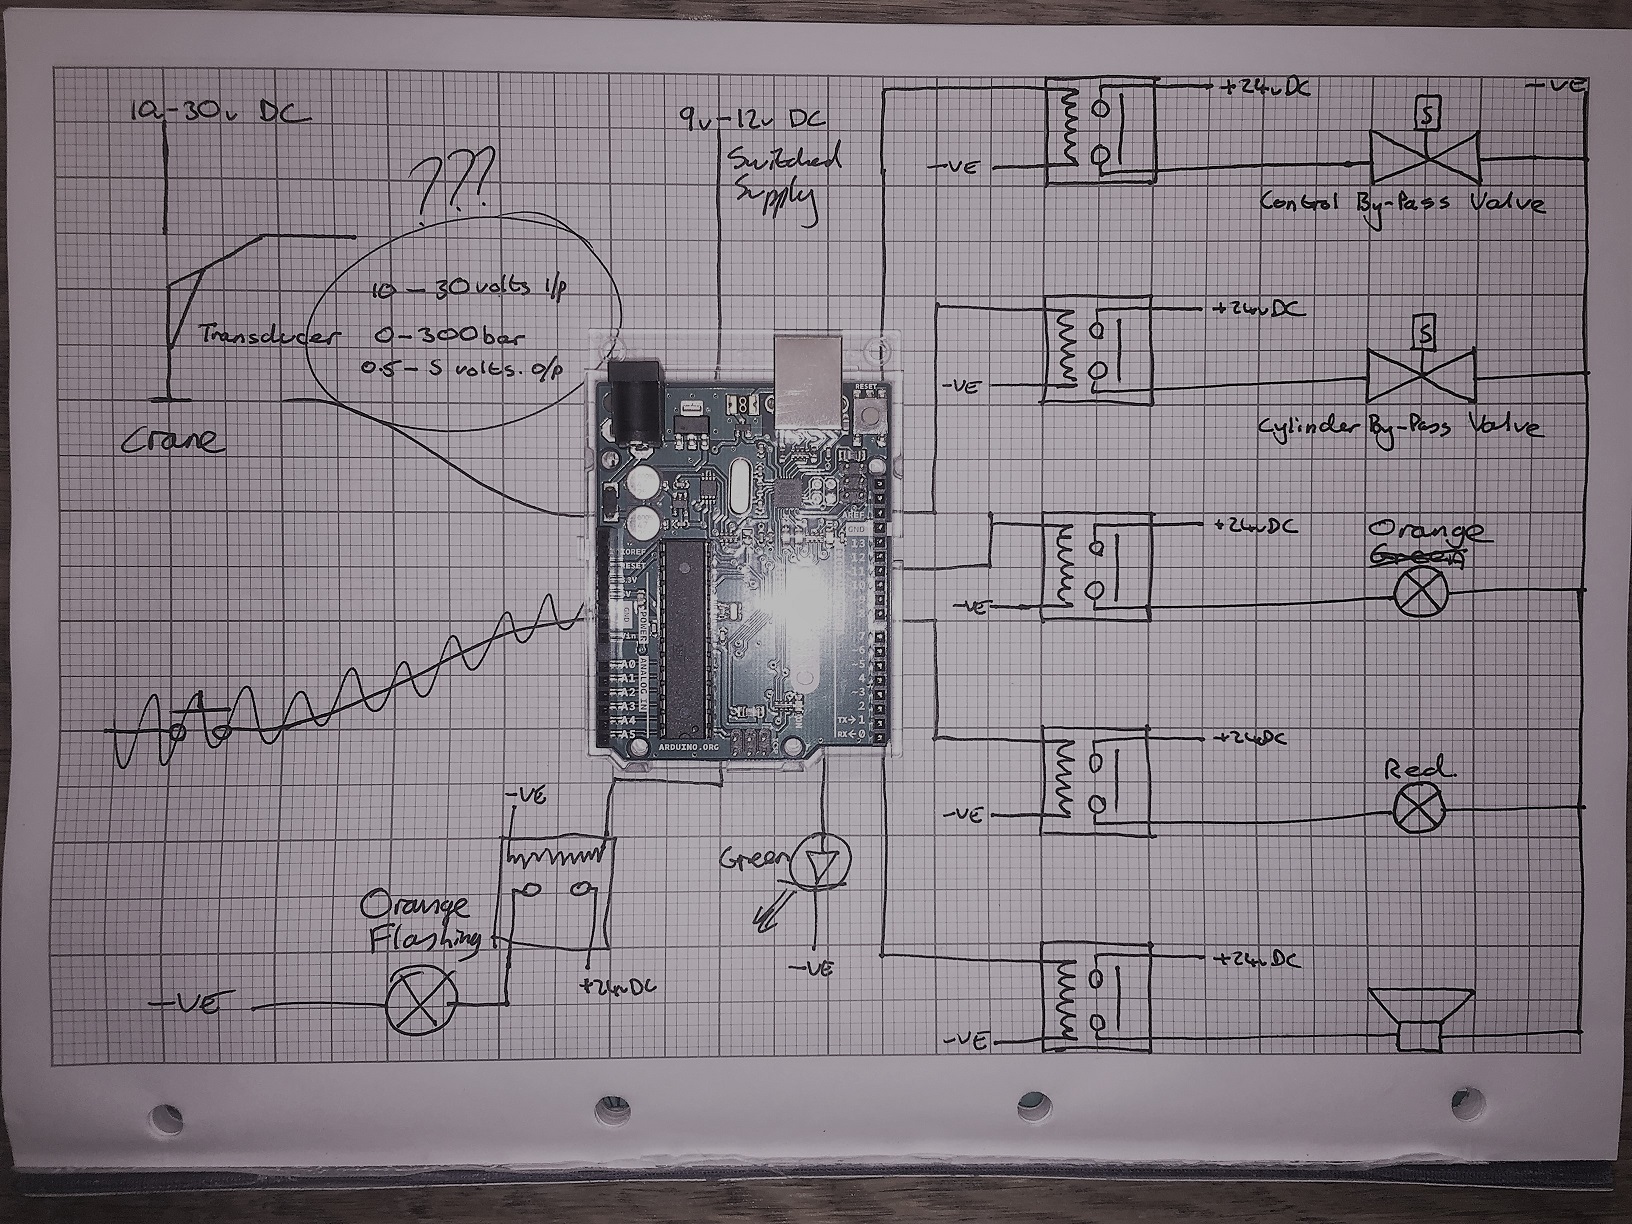 10-30v DC
???
Transducer
10 - 30 volts I/p
0-300bar
0.5 - 5 volts. O/p
Crane
9v-12v DC
Switched
Supply
+24vDC
-VE
-VE
S
Control By-Pass Valve
+24vDC
-VE
S
Cylinder By-Pass Valve
+24vDC
-VE
Orange
Green
+24vDC
-VE
Red.
+24vDC
-VE
-VE
Orange
Flashing
-VE
+24vDC
Green
-VE
RESET
AREF
GND
13
12
11
10
9
7
~6
~5
4
~3
2
TX→1
RX←0
IOREF
RESET
3.3V
5V
GND
Vin
POWER
ANALOG IN
A0
A1
A2
A3
A4
A5
ARDUINO.ORG